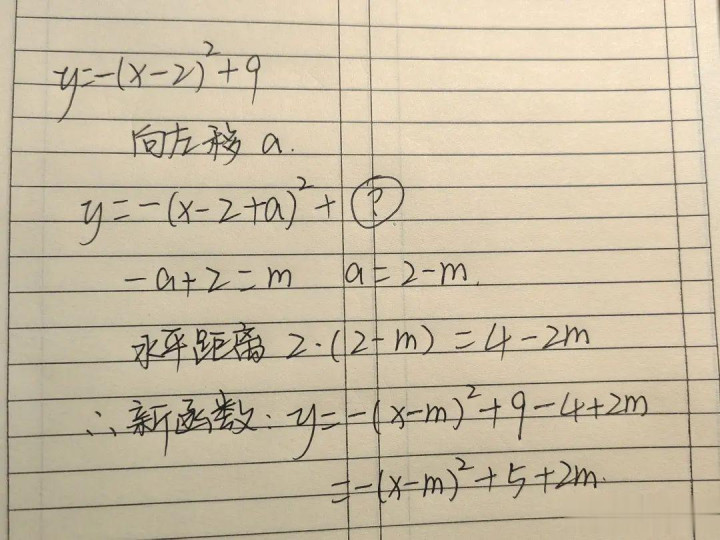 y=-(x-2)²+9
向左移 a.
y=-(x-2+a)²+?
-a+2=m a=2-m.
水平距离 2·(2-m)=4-2m
∴新函数: y=-(x-m)²+9-4+2m
=-(x-m)²+5+2m.